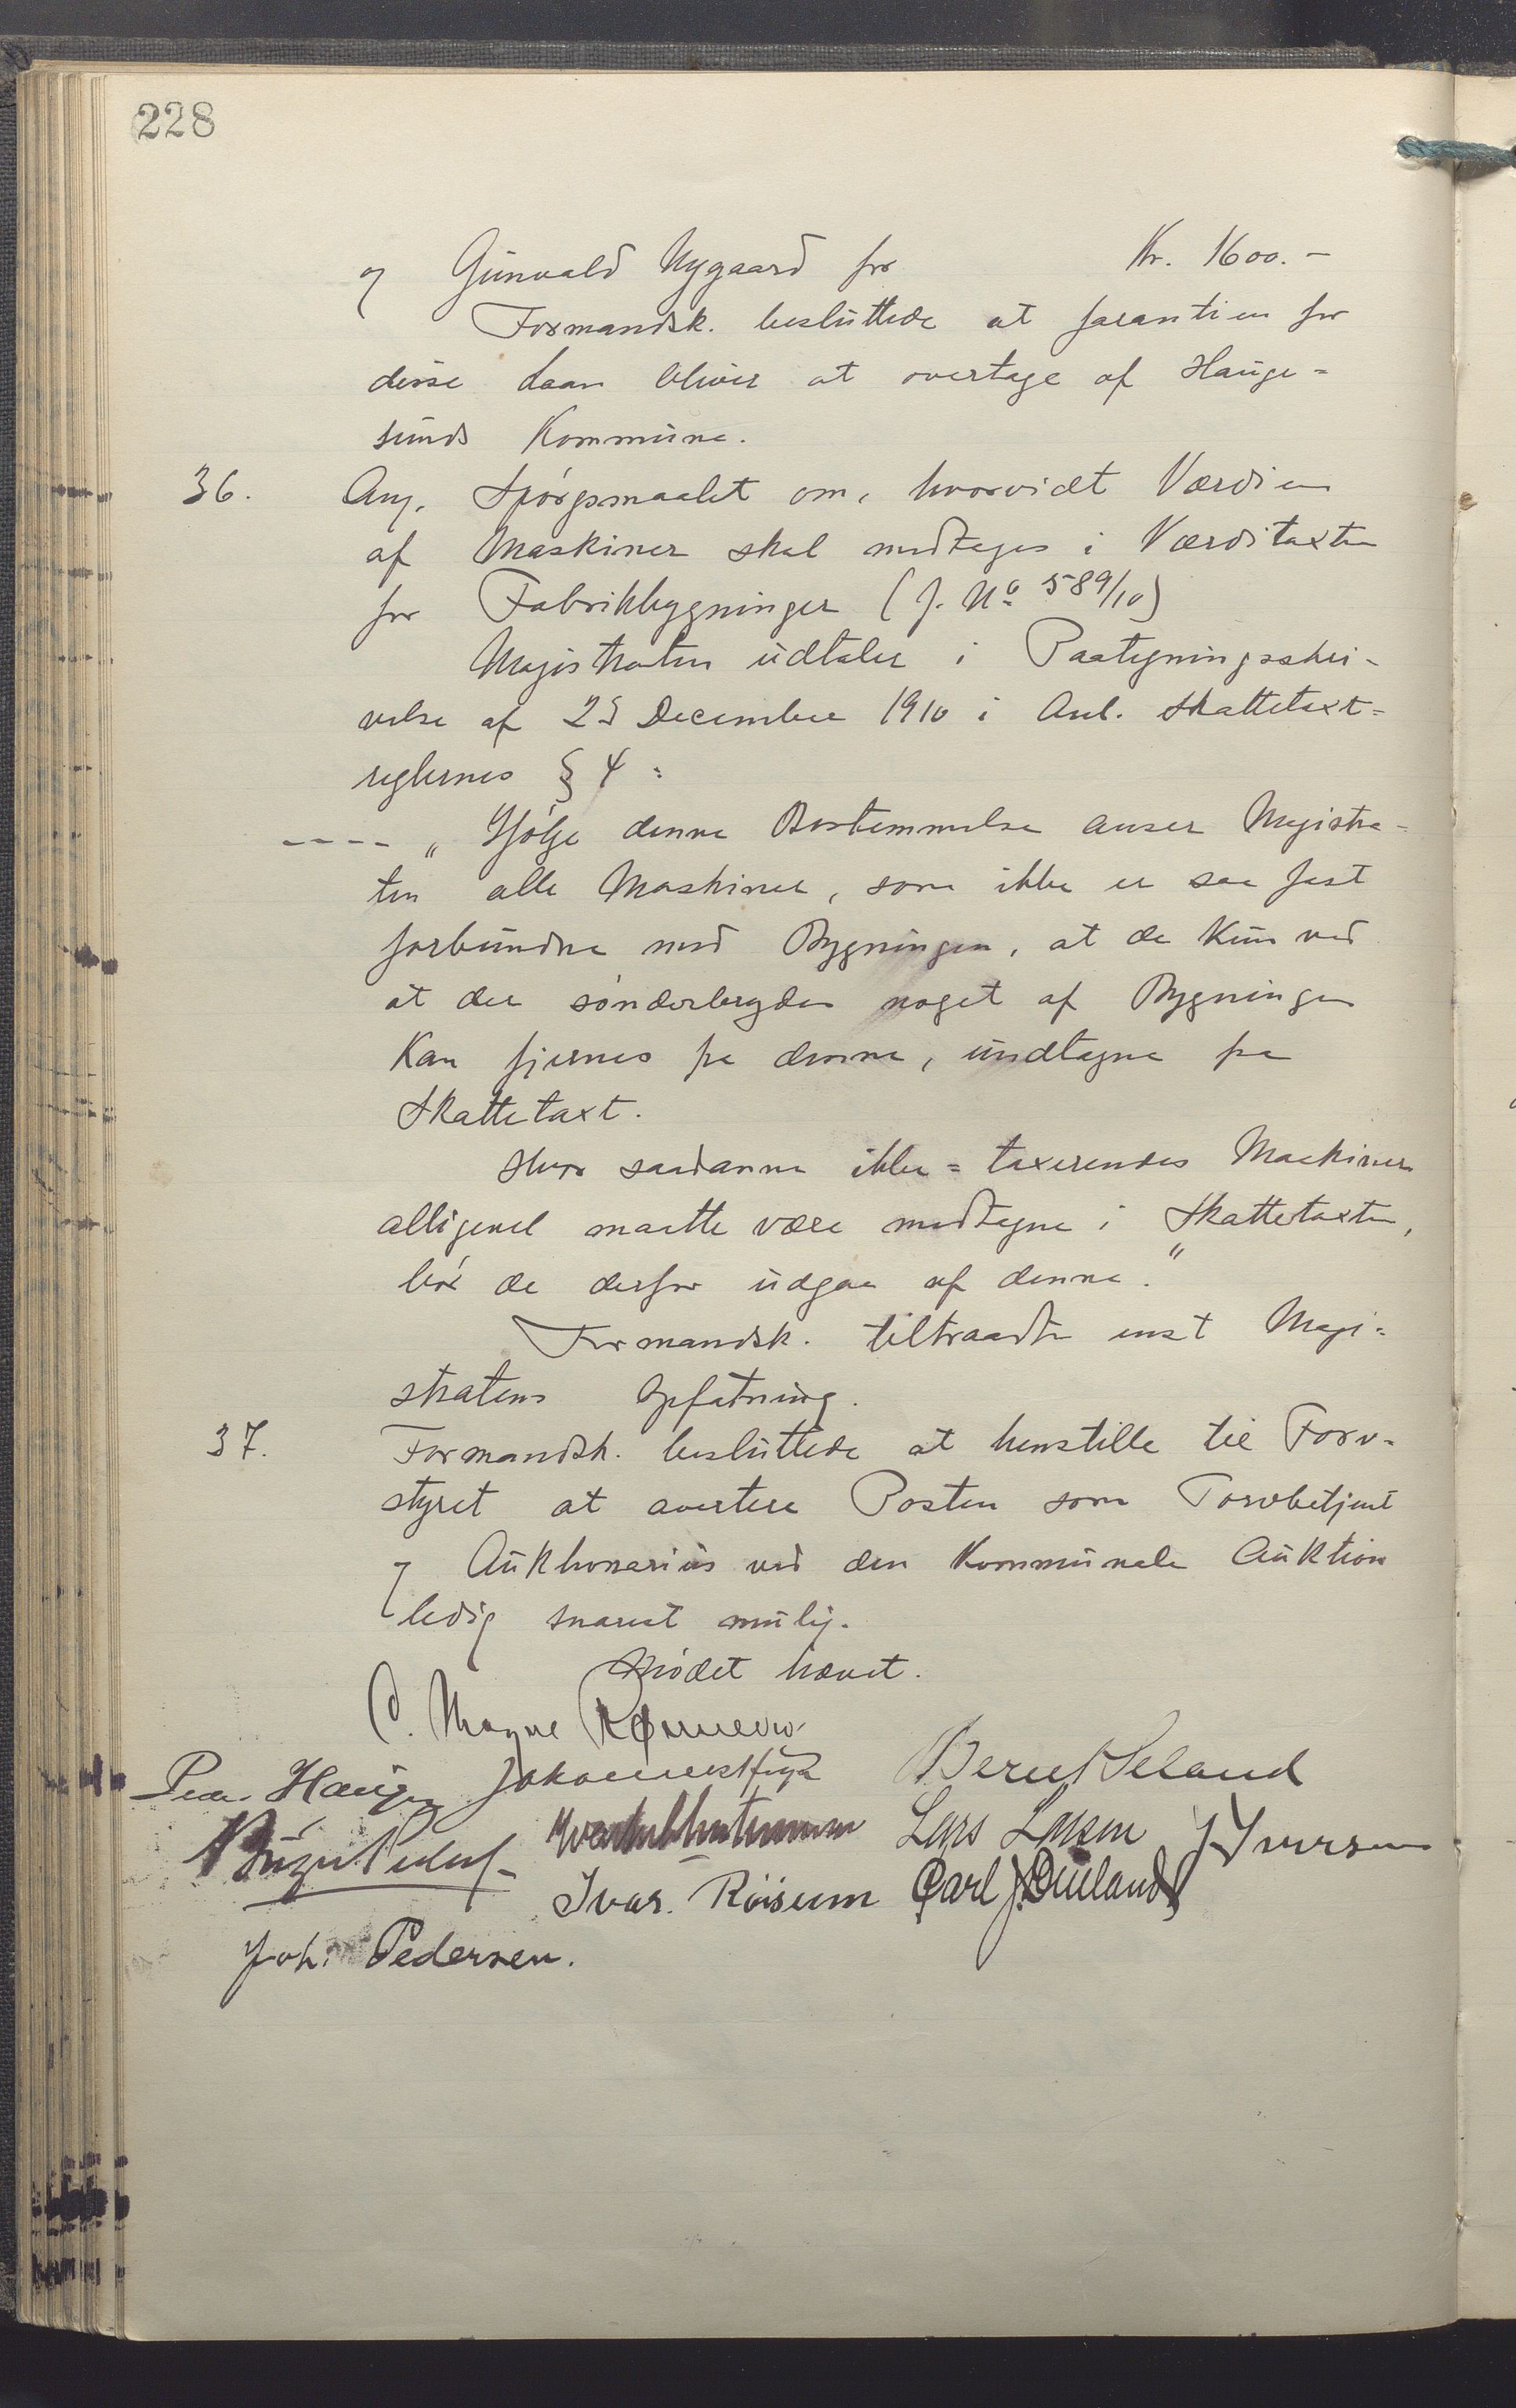 228
og Gunvald Nygaard for Kr. 1600.-
Formandsk. besluttede at garantien for
disse Laan bliver at overtage af Hauge=
sunds Kommune.
36. Ang. Spørgsmaalet om, hvorvidt Værdien
af Maskiner skal medtages i Værditaxten
for Fabrikbygninger (J. No 589/10)
Magistraten udtaler i Paategningsskri-
velse af 23 December 1910 i Anl. Skattetaxt=
reglernes § 4:
---- „Ifølge denne Bestemmelse anser Magistra-
ten alle Maskiner, som ikke er saa fast
forbundne med Bygningen, at de kun ved
at der sønderbrydes noget af Bygningen
kan fjernes fra denne, undtagne fra
Skattetaxt.
Hvor saadanne ikke=taxerendes Maskiner
alligevel maatte være medtagne i Skattetaxten,
bør de derfor udgaa af denne."
Formandsk. tiltraadte enst Magi=
stratens Opfatning.
37. Formandsk. besluttede at henstille til Torv-
styret at avertere Posten som Torvbetjent
og Auktionarius ved den kommunale Auktion
ledig snarest mulig.
Mødet hævet.
C. Magne Rønnevig
Peder Hauge Bernt Seland
Lars Larsen J Iversen
Ivar. Röisum Carl J.
Joh. Pedersen.